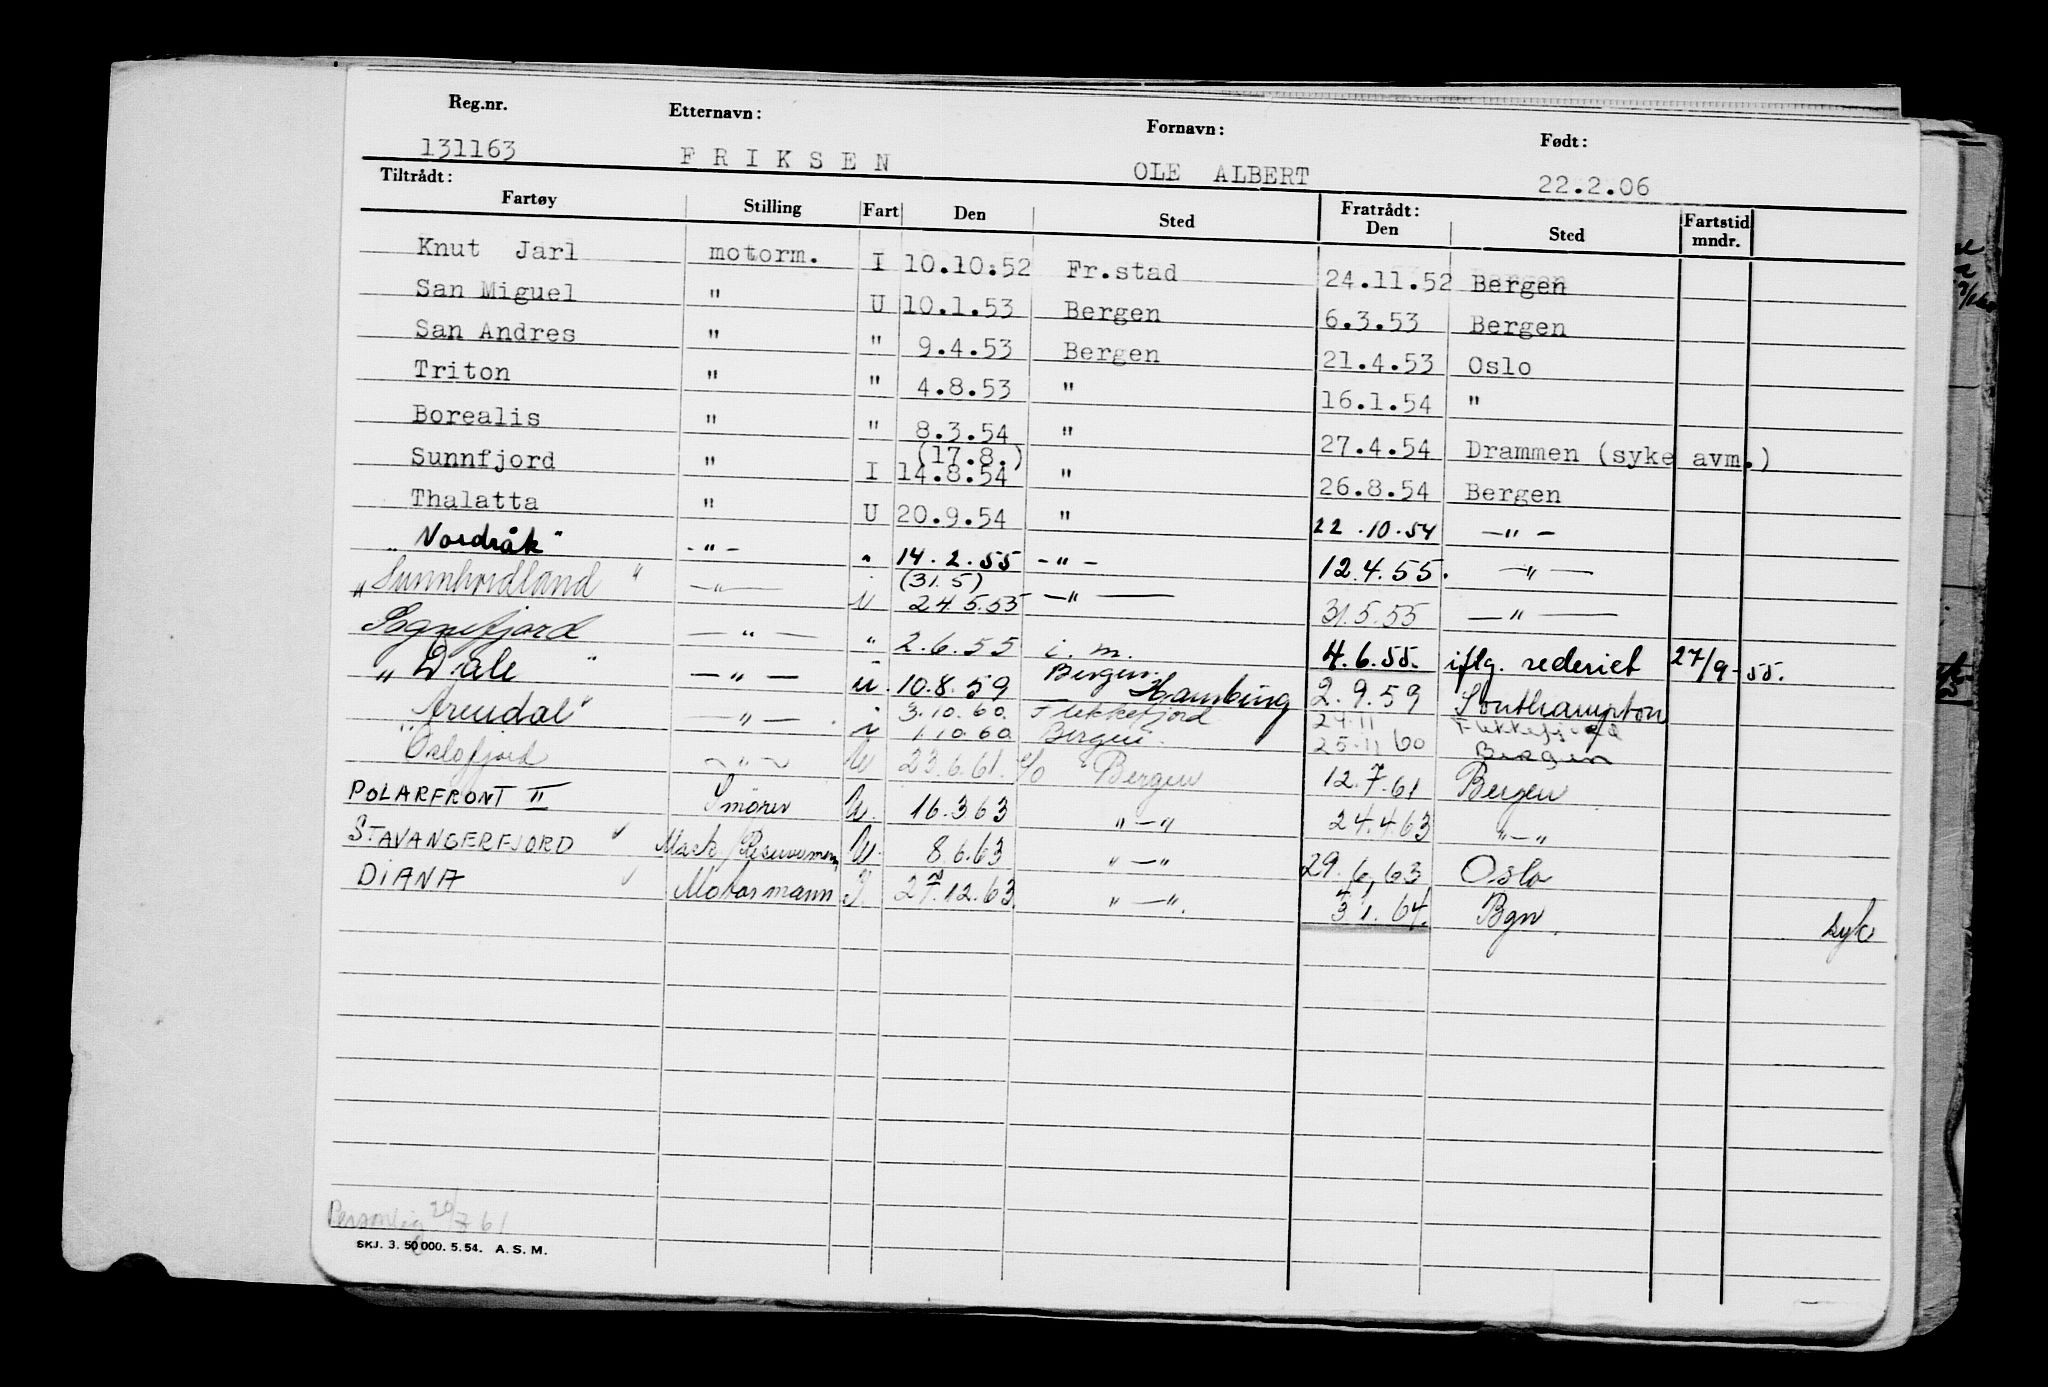 Reg.nr. Etternavn: Fornavn: Født:
131163 FRIKSEN OLE ALBERT 22.2.06
Tiltrådt: Fratrådt:
Fartøy Stilling Fart Den Sted Den Sted Fartstid mndr.
Knut Jarl motorm. I 10.10.52 Fr.stad 24.11.52 Bergen
San Miguel " U 10.1.53 Bergen 6.3.53 Bergen
San Andres " " 9.4.53 Bergen 21.4.53 Oslo
Triton " " 4.8.53 " 16.1.54 "
Borealis " " 8.3.54 " 27.4.54 Drammen (syke avm.)
(17.8.)
Sunnfjord " I 14.8.54 " 26.8.54 Bergen
Thalatta " U 20.9.54 " 22.10.54 —"—
"Nordråk" -"- " 14.2.55 -"- 12.4.55. —"—
(31.5)
"Sunnhordland" —"— i 24.5.55 —"— 31.5.55 —"—
Sognefjord —"— " 2.6.55 i.m. 4.6.55. iflg. rederiet 27/9-55.
"Dale" —"— u. 10.8.59 Bergen. Hamburg 2.9.59 Southampton
3.10.60. Flekkefjord 24.11 Flekkefjord
"Arendal" —"— i 1.10.60. Bergen. 25.11 60 Bergen
"Oslofjord ~"~ U 23.6.61. c/o Bergen 12.7.61 Bergen
POLARFRONT II Smörer U. 16.3 63 "—" 24.4.63 "—"
STAVANGERFJORD Mask/Reservemann U. 8.6.63 "—" 29.6.63 Oslo
DIANA Motormann I. 27.12.63. "—". 3 1. 64. Bgn. syk
Personlig 20/7 61
SKJ. 3. 50 000. 5.54. A.S.M.